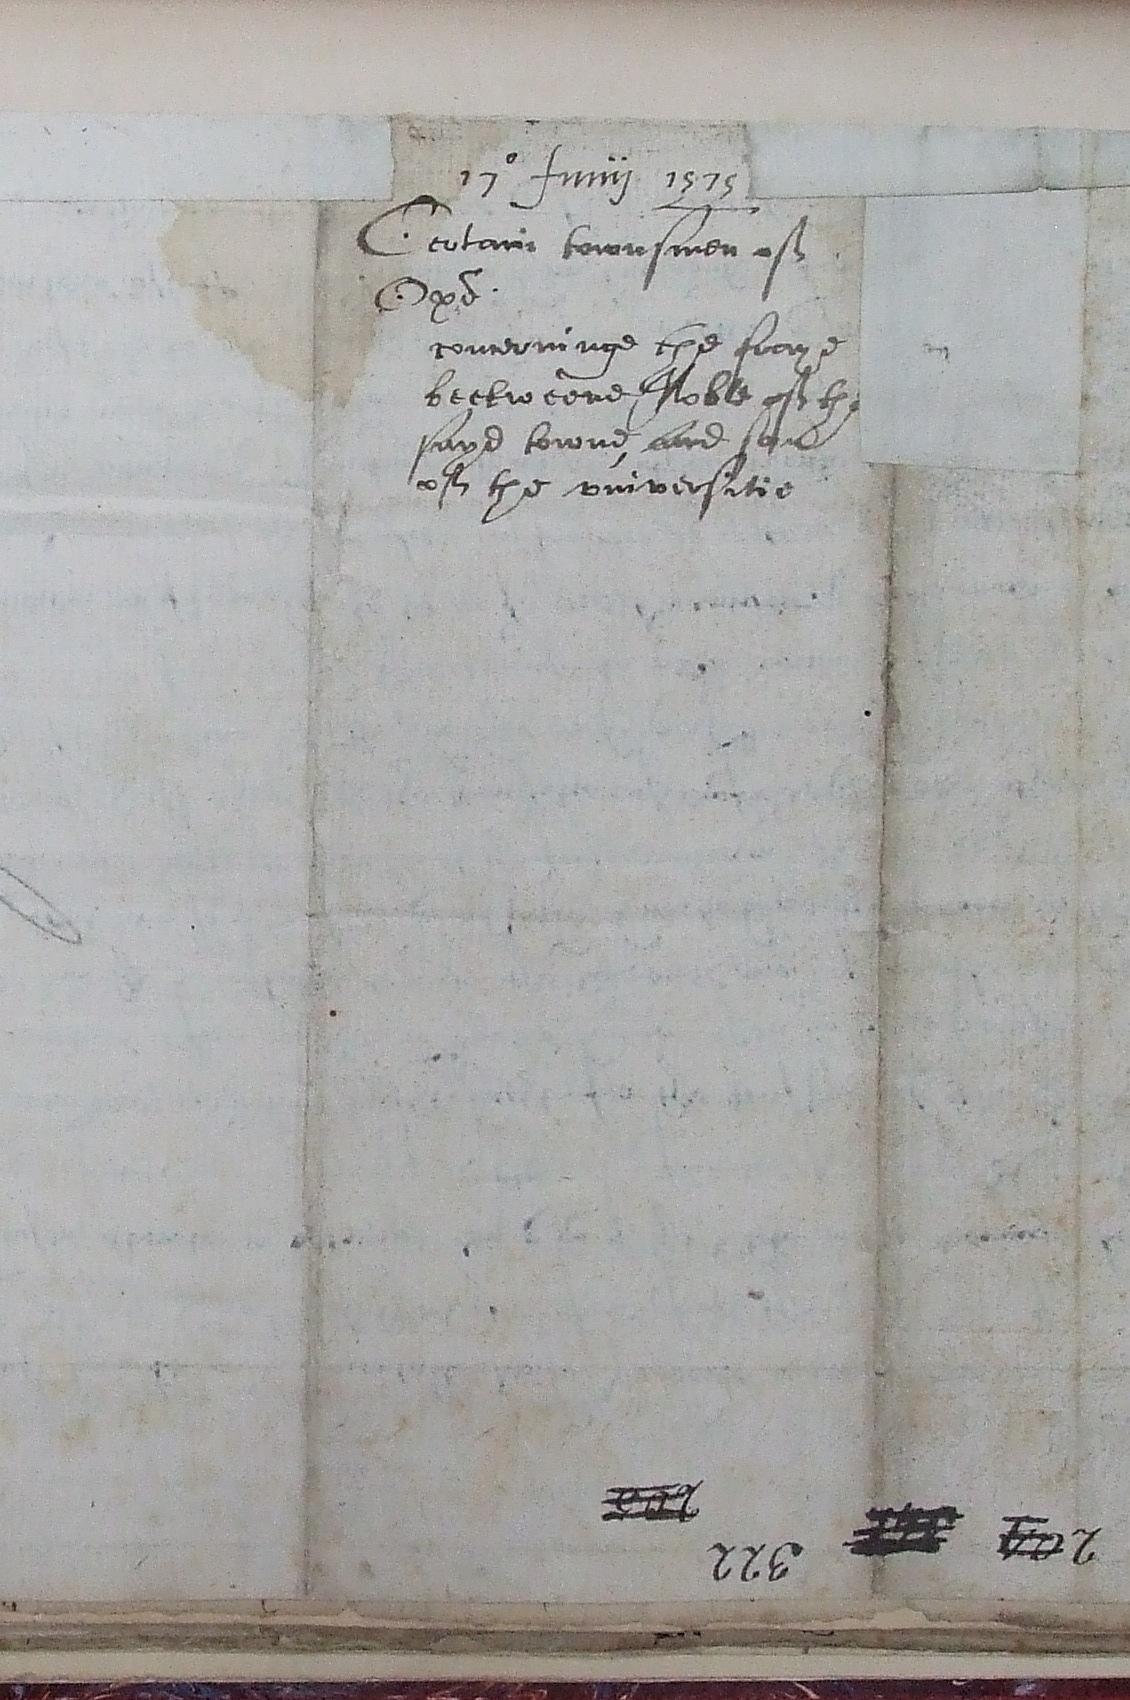 17° Junij 1575
Certain townsmen off
Oxd.
concerninge the fraye
beetweene Noble off the
sayd towne, and som
off the universitie
322